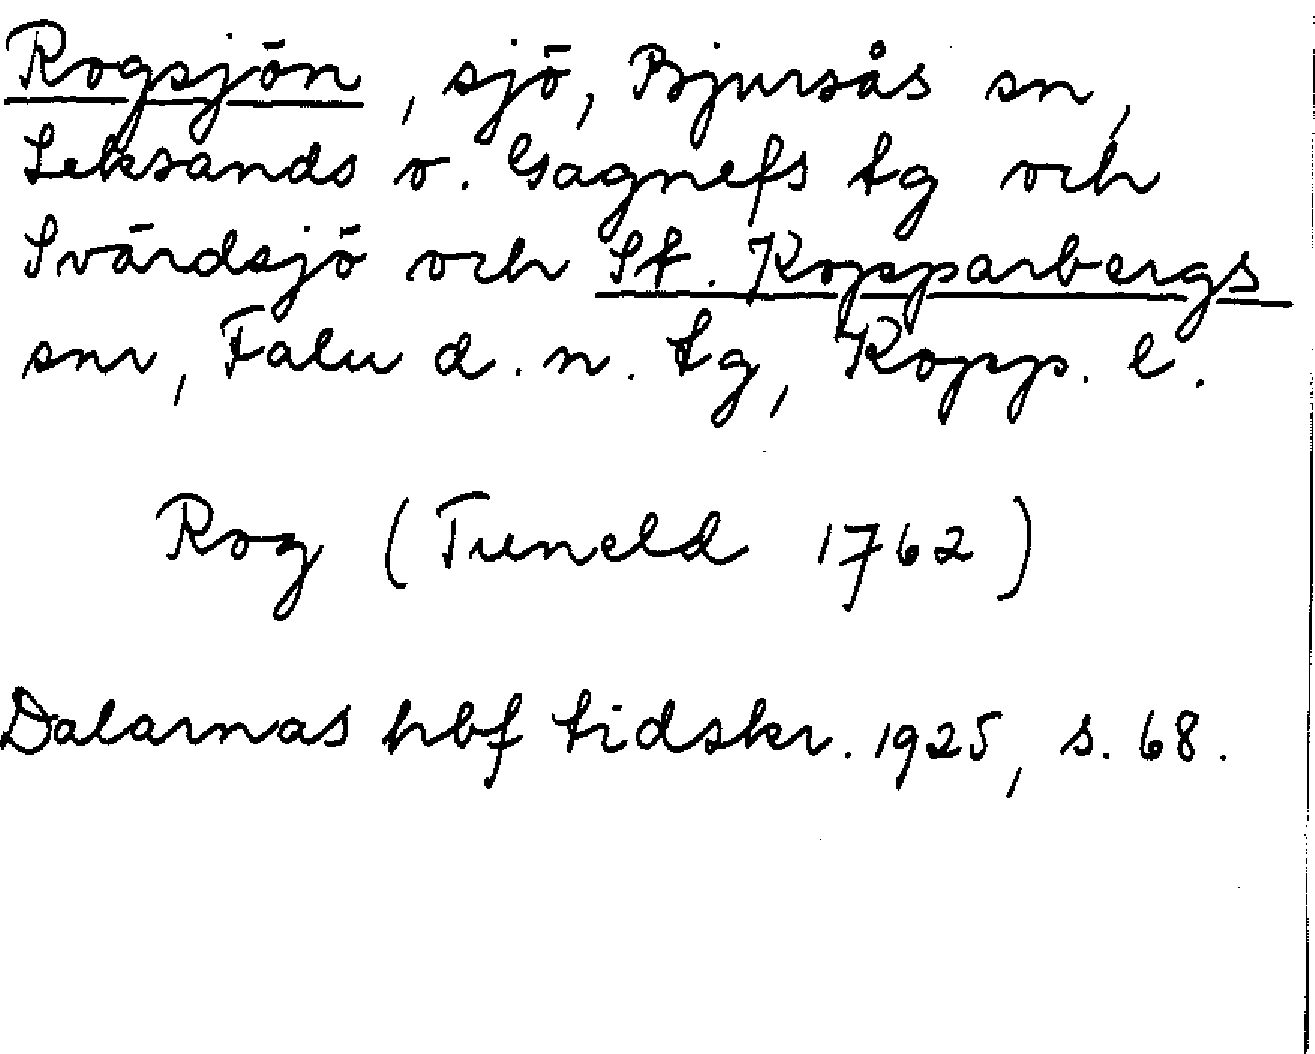 Rogsjön, sjö, Bjursås sn,
Leksands o. Gagnefs tg och
Svärdsjö och St. Kopparbergs
snr, Falu d. n. tg, Kopp. l.
Rog (Tuneld 1762)
Dalarnas hbf tidskr. 1925, s. 68.